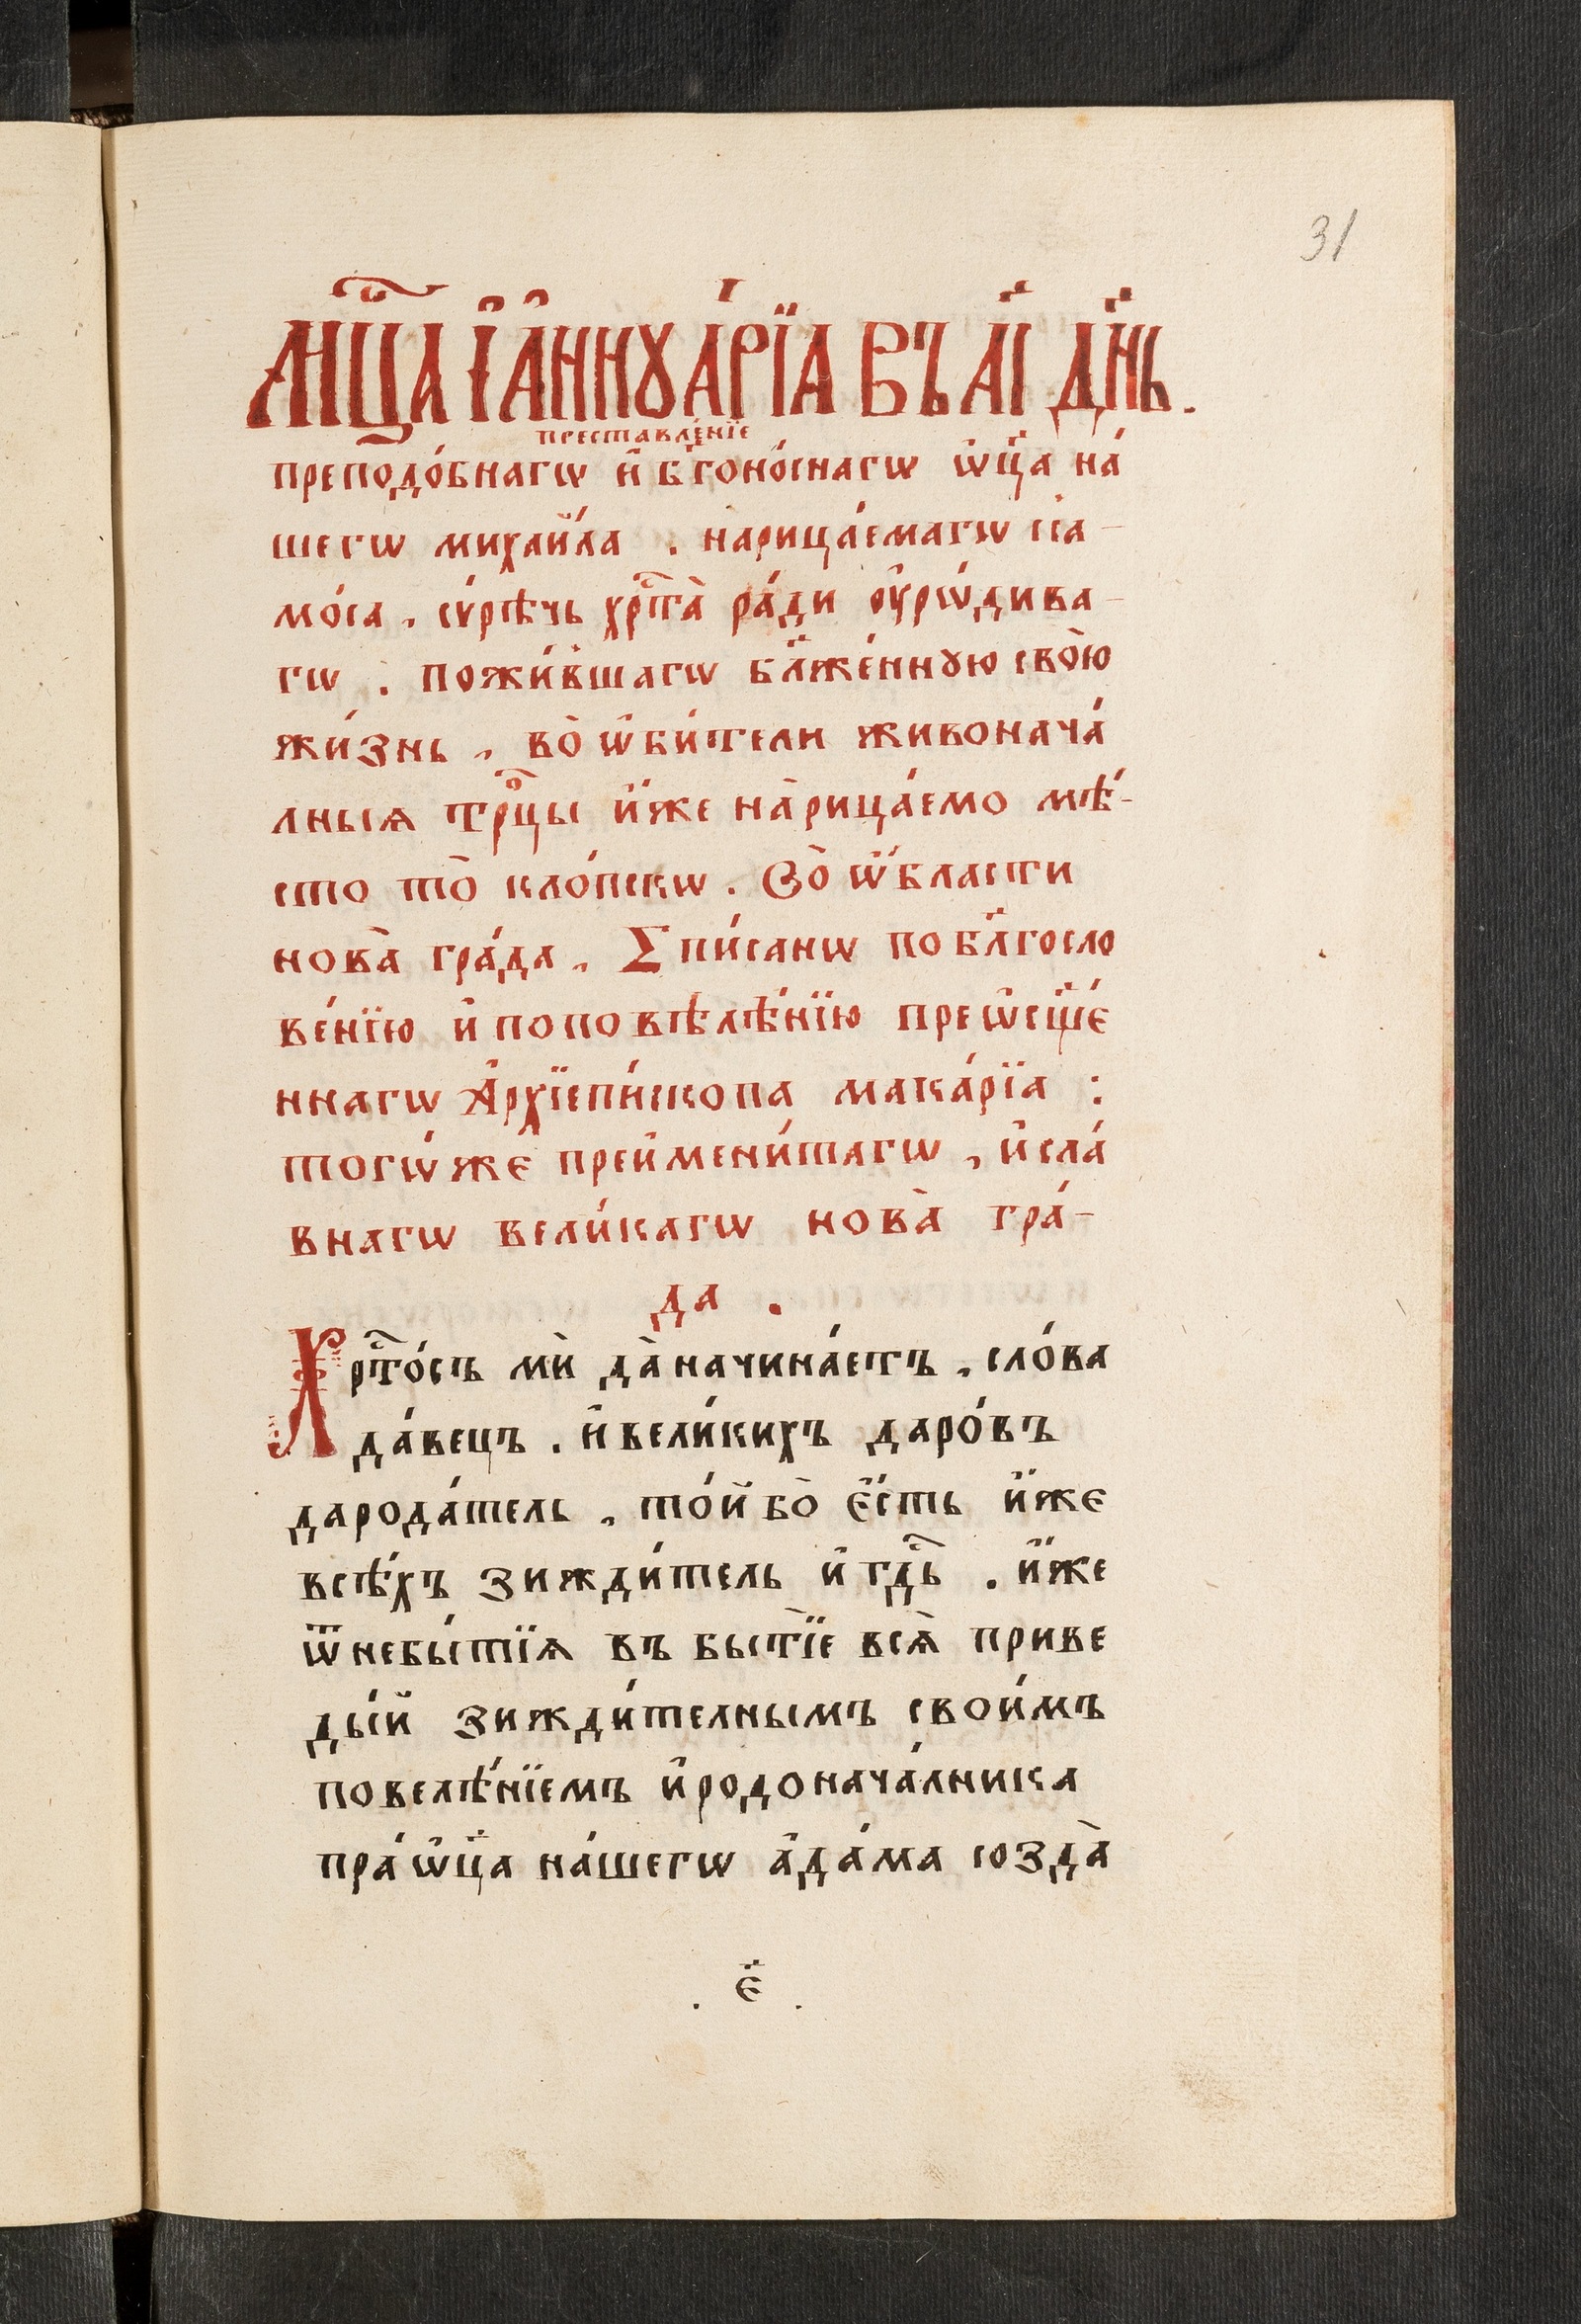 31
Мⷭ҇ца і҆а҆ннꙋа́рїа въ а҃і дн҃ь.
преставле́нїе
преподо́бнагѡ и҆ бг҃оно́снагѡ ѡ҆ц҃а на́
шегѡ михаи́ла . нарица́емагѡ сⷭ҇а-
мо́са , сѵ́рѣчь хрⷭ҇та̀ ра́ди ѹ҆рѡ́дива-
гѡ . пожи́вшагѡ бл҃же́ннꙋю свою̀
жи́знь , во̀ ѡ҆би́тели живонача́
лныѧ трⷪ҇цы и҆́же на̀рица́емо мѣ́-
сто то̀ кло́пскѡ . Во̀ ѡ҆́бласти
нова̀ гра́да , Спи́санѡ по бл҃госло
ве́нїю и҆ по повѣлѣ́нїю преѡ҆сщ҃е́
ннагѡ А҆рхїепи́скопа мака́рїа :
тогѡ́же преи҆мени́тагѡ , и҆ сла́
внагѡ вели́кагѡ нова̀ гра́-
да .
Хрⷭ҇то́съ мѝ да̀ начина́етъ , сло́ва
да́вецъ . и҆ вели́кихъ даро́въ
дарода́тель , то́й бо̀ є҆́сть и҆́же
всѣ́хъ зижди́тель и҆ гдⷭ҇ь . и҆́же
ѿ небы́тїѧ въ бытїѐ всѧ̀ приве
ды́й зижди́телнымъ свои́мъ
повелѣ́нїемъ и҆ родонача́лника
пра́ѡ҆ц҃а на́шегѡ а҆да́ма созда̀
. є҃ .